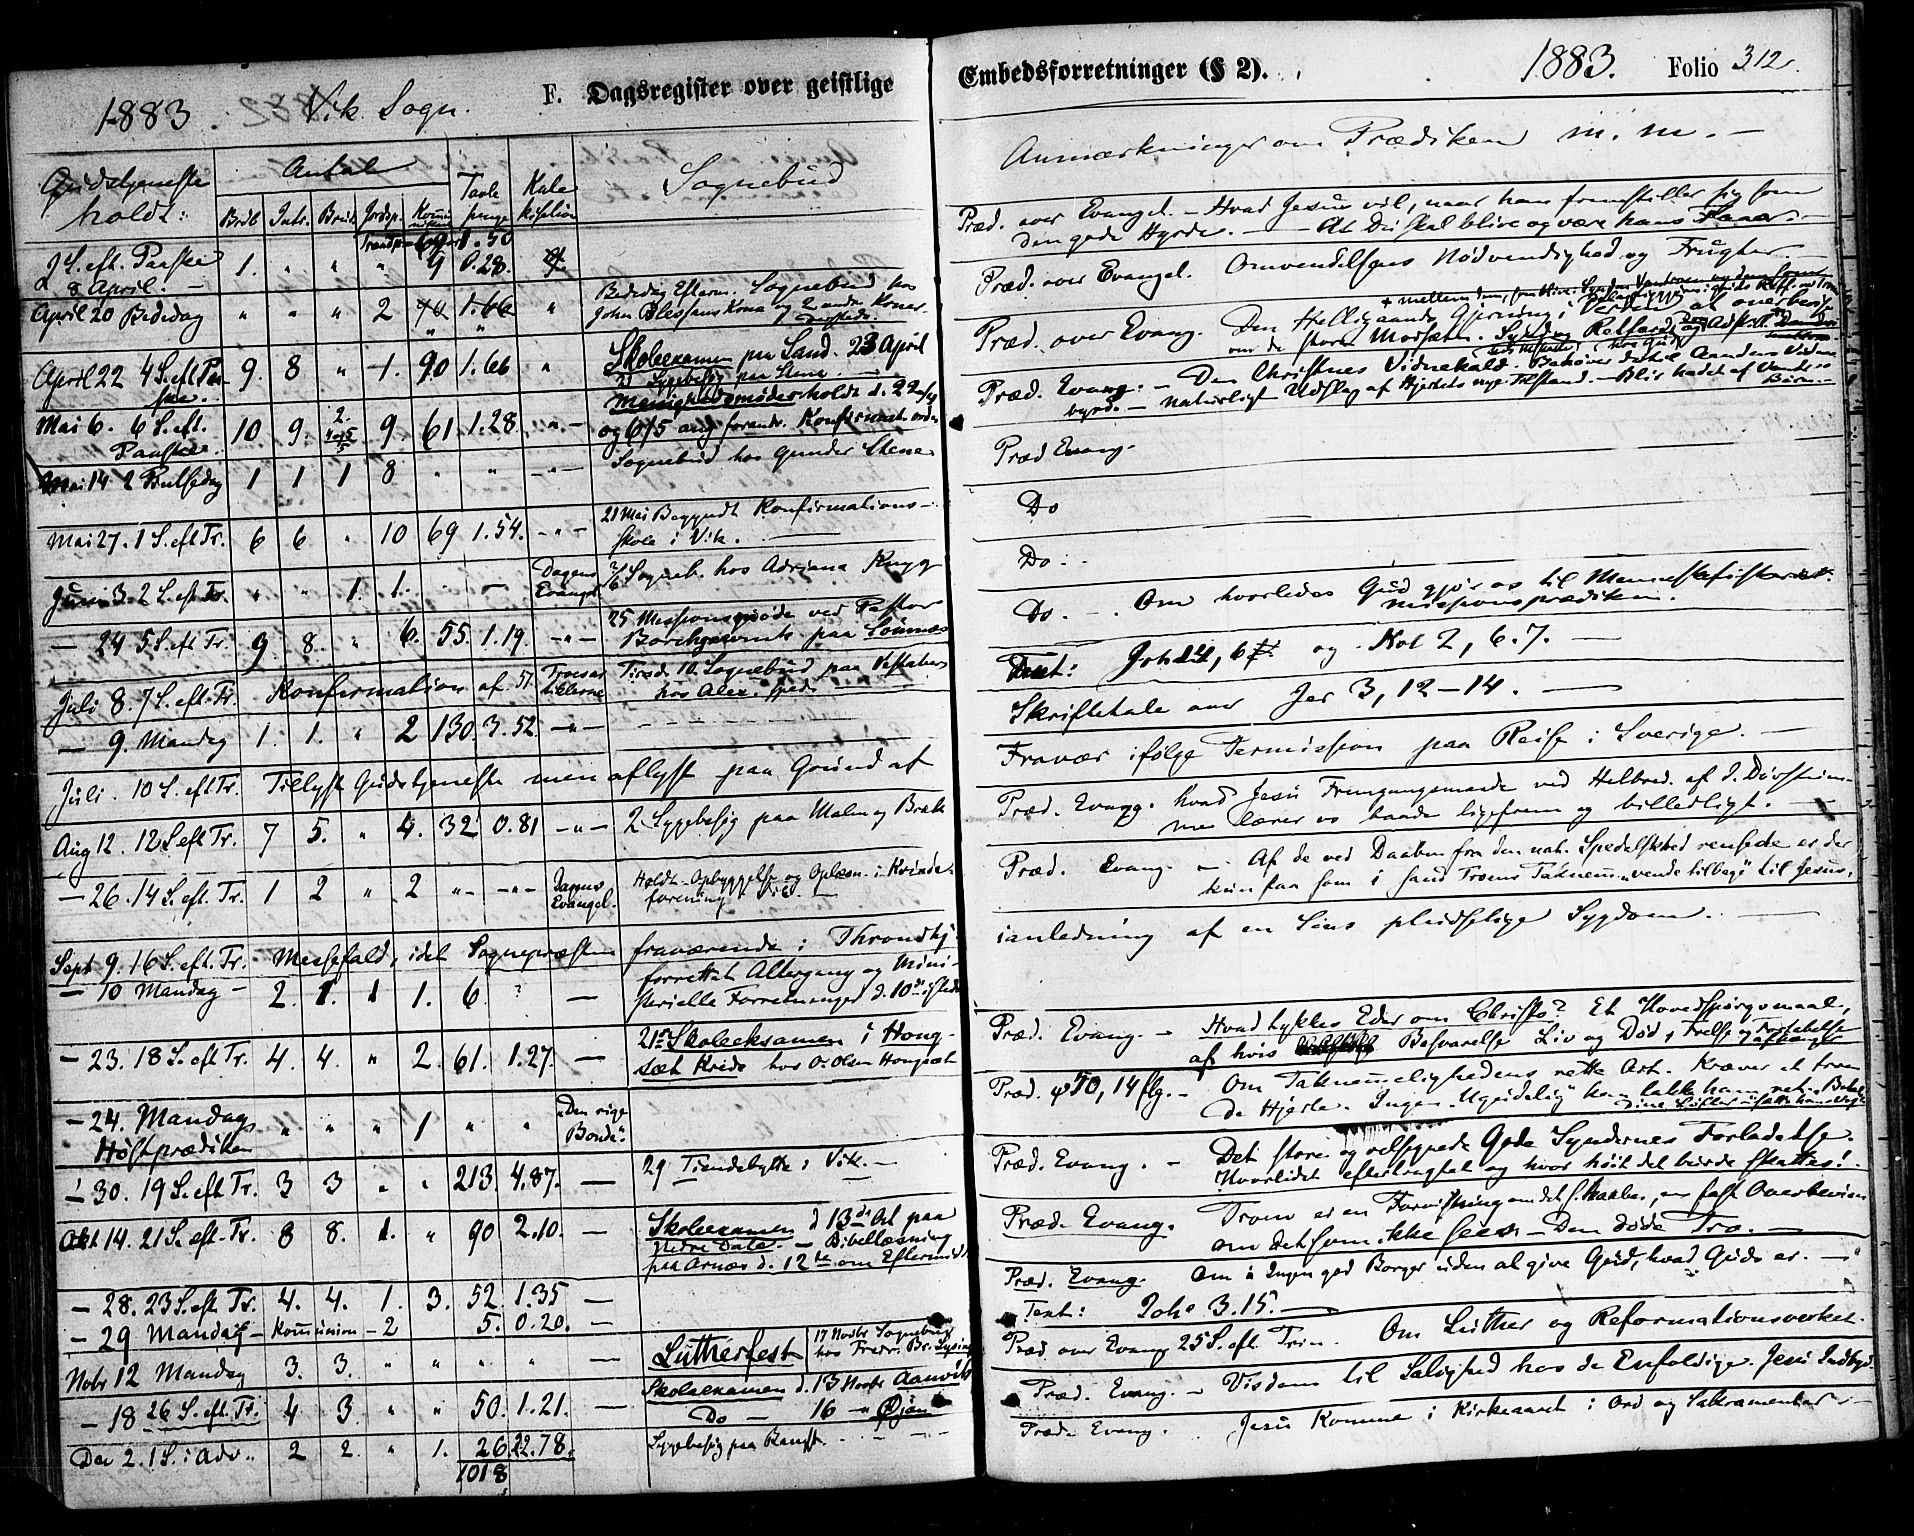 1883. Vik Sogn. F. Dagsregister over geistlige
Gudstjeneste holdt: Antal Tavle penge Kate kisation Sognebud
Brdb Intr. Brud. Jordsp. Kommu
2 S. eft. Paaske 1. " " " 9 0.28.
8 April. —
April 20 Bededag " " " 2 1.66 " Bededag Efterm. Sognebud hos
John Konen og 2 andre Koner
April 22 4 S. eft Paa- 9. 8 " 1. 90 1.66 " Skoleexamen paa Sand. 23 April
ske. 2 Sygebesøg paa Stene
Menighedsmøder holdt d. 22
Mai 6. 6 S. eft. 10. 9. 2. 9 61 1.28 " og 6/5 ang. forandr. Konfirmat. orden
Paaske.
Mai 14 2 Pintsedag 1 1 1 8 " " " Sognebud hos Gunder Stene
Mai 27. 1 S. eft Tr. 6 6 " 10 69 1.54. " 21 Mai Begyndt Konfirmations-
skole i Vik. —
Juni 3. 2 S. eft Tr. " " 1 1. " — Dagens Evangel Sogneb. hos Adriana
— 24 5 S. eft Tr. 9 8. " 6. 55. 1.19. " 25 Missionsmøde ved Pastor
paa
Juli 8. 7 S. eft. Tr. Konfirmation af 57 Troesar tiklerne Tirsd. 10. Sognebud paa
hos Alex.
— 9. Mandag 1. 1. " 2 130. 3.52. "
Juli. 10 S. eft Tr. Tillyst Gudstjeneste men aflyst paa Grund af
Aug 12. 12 S. eft Tr. 7 5. " 4. 32 0.81 " 2 Sygebesøg paa Malm og Brak
— 26. 14 S. eft. Tr. 1 2 " 2 " " Dagens Evangel. Holdt Opbyggelse og Oplæsn. i Kvinde-
forening i Vik. —
Sept 9. 16 S. eft. Tr. Messefald, idet Sognepræsten fraværende i Throndhj.
— 10 Mandag — 2. 1. 1 1. 6. — forrettet Altergang og Mini-
sterielle Forretninger d. 10de istedet
— 23. 18 S. eft Tr. 4. 4. " 2. 61. 1.27. — 21de Skoleeksamen i Hong-
sæt Kreds hos O. Olsen Hongsæt
— 24. Mandag " " " 1 " " "Den rige
Høstprædiken Bonde".
— 30. 19 S. eft Tr. 3 3 " " 213. 4.87. — 29 Tiendebytte i Vik. —
Okt 14. 21 S. eft. Tr. 8 8. 1. " 90 2.10. — Skoleexamen d 13de Okt paa
nedre Dale. — Bibellæsning
paa Arnøs d. 12te om Eftermidd
— 28. 23 S. eft. Tr. 4. 4. 1. 3. 52 1.35 —
— 29 Mandag — Kommunion — 2 5. 0.20. —
Nobr 12 Mandag 3. 3. " " " " — Lutherfest 17 Novbr Sognebud
hos Fredr. Br.
— 18 26 S. eft. Tr. 4 3. " " 50. 1.21. — Skoleexamen d. 13 Novbr Aanvik
Do — 16 — " Øjen
Dec 2. 1 S. i Adv. 2 2. " 1. 26. 22.78. Sygebesøg paa
1018
Embedsforretninger (§ 2). 1883. Folio 312.
Anmærkninger om Prædiken m. m. —
Præd. over Evangel. — Hvad Jesus vil, naar han fremstiller sig som
den gode Hyrde. — At Du skal blive og være hans Faar. —
Præd. over Evangel. Omvendelsens Nødvendighed og Frugter.
Præd. over Evang. Den Helligaands Gjerning i Verden at overbevise
om de store Modsætn. Synd og Retfærd,
Præd. Evang. — Den Christnes Vidnekald — Behøver dertil Aandens Vidnes
byrd. — naturligt Udslag af Hjertets nye Tilstand. — Blir hadet af Verdens
Børn. —
Præd Evang.
Do
Do.
Do. — Om hvorledes Gud gjør os til Menneskefiskere.
Missionsprædiken.
Text: og Kol 2, 6. 7. —
Skriftetale over Jer 3, 12—14. —
Fravær ifølge Permission paa Reise i Sverige. —
Præd. Evang. hvad Jesu Fremgangsmaade ved Helbred. af d. Døvstum-
me lærer os baade ligefrem og billedligt. —
Præd. Evang. — Af de ved Daaben fra den nat. Spedalskhed rensede er der
kun faa som i sand Troens Taknem. "vende tilbage" til Jesus.
ianledning af en Søns pludselige Sygdom. —
Præd. Evang. — Hvad tykkes Eder om Christo? Et Hovedspørgsmaal,
af hvis Besvarelse Liv og Død, Frelse og Fortabelse
afhænger
Præd. ψ 50, 14 flg. — Om Taknemelighedens rette Art. Kræver et from
de Hjerte. Ingen "Ugudelig" kan takke ham ret. Betal
dine Løfter
Præd. Evang. — Det store og velsignede Gode Syndernes Forladelse.
Hvorlidet eftertragtet og hvor høit det burde skattes!
Præd. Evang. Troen er en Forvisning om det s. haabes, en fast Overbevisn
om det som ikke sees — Den døde Tro. —
Præd. Evang. Om: Ingen god Borger uden at give Gud, hvad Guds er. —
Text: Joh. 3.15. —
Præd over Evang 25 S. eft. Trin. Om Luther og Reformationsverket.
Præd. Evang. — Visdom til Salighed hos de Enfoldige. Jesu Indbyd.
Præd. Evang. Jesu Komme i Kirkeaaret i Ord og Sakramenter —